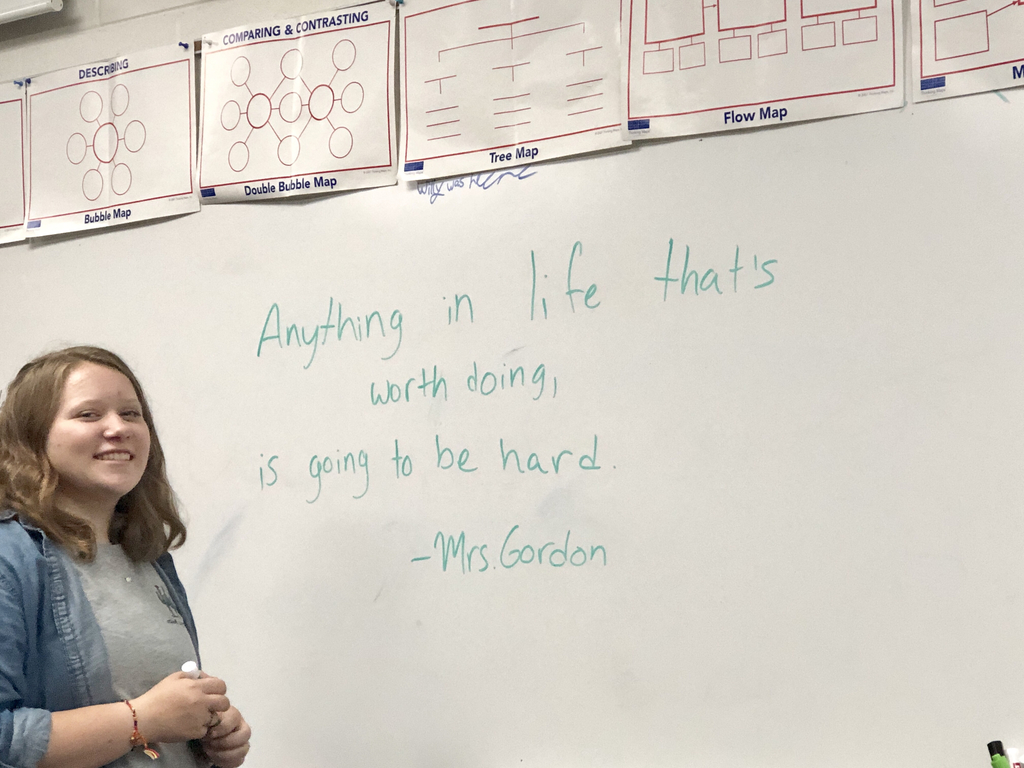 DESCRIBING
COMPARING & CONTRASTING
Bubble Map
Double Bubble Map
Tree Map
Flow Map
M
Willy was here
Anything in life that's
worth doing,
is going to be hard.
-Mrs. Gordon